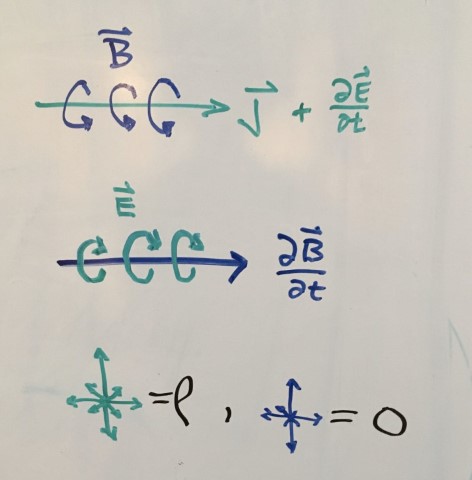 B⃗
J⃗ + ∂E⃗/∂t
E⃗
∂B⃗/∂t
=ρ, = 0